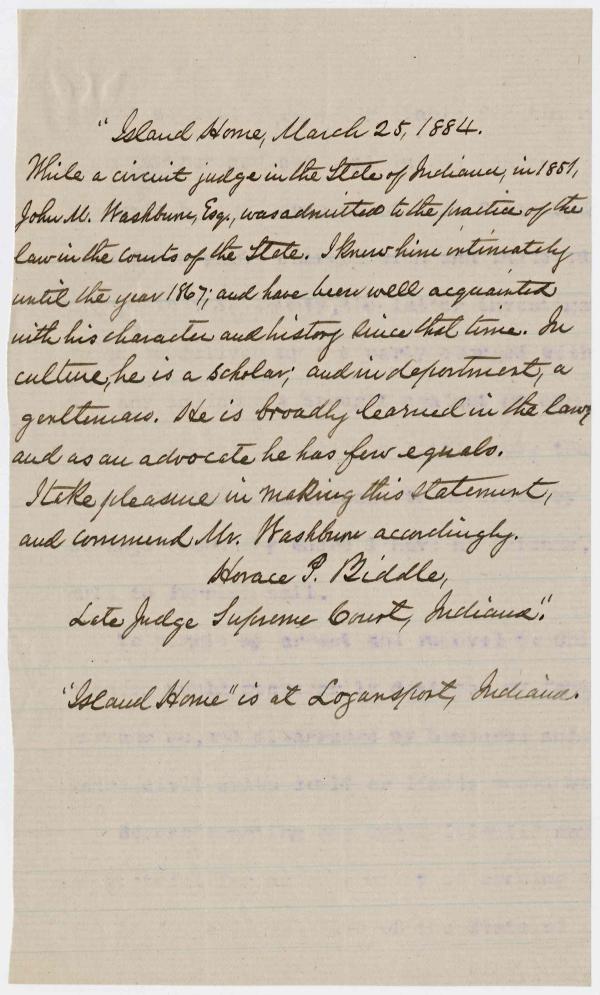 "Island Home, March 25, 1884.
While a circuit judge in the State of Indiana, in 1851,
John M. Washburn, Esq., was admitted to the practice of the
law in the courts of the State. I knew him intimately
until the year 1867; and have been well acquainted
with his character and history since that time. In
culture, he is a scholar; and in deportment, a
gentleman. He is broadly learned in the law;
and as an advocate he has few equals.
I take pleasure in making this statement,
and commend Mr. Washburn accordingly.
Horace P. Biddle,
Late Judge Supreme Court, Indiana".
"Island Home" is at Logansport, Indiana.